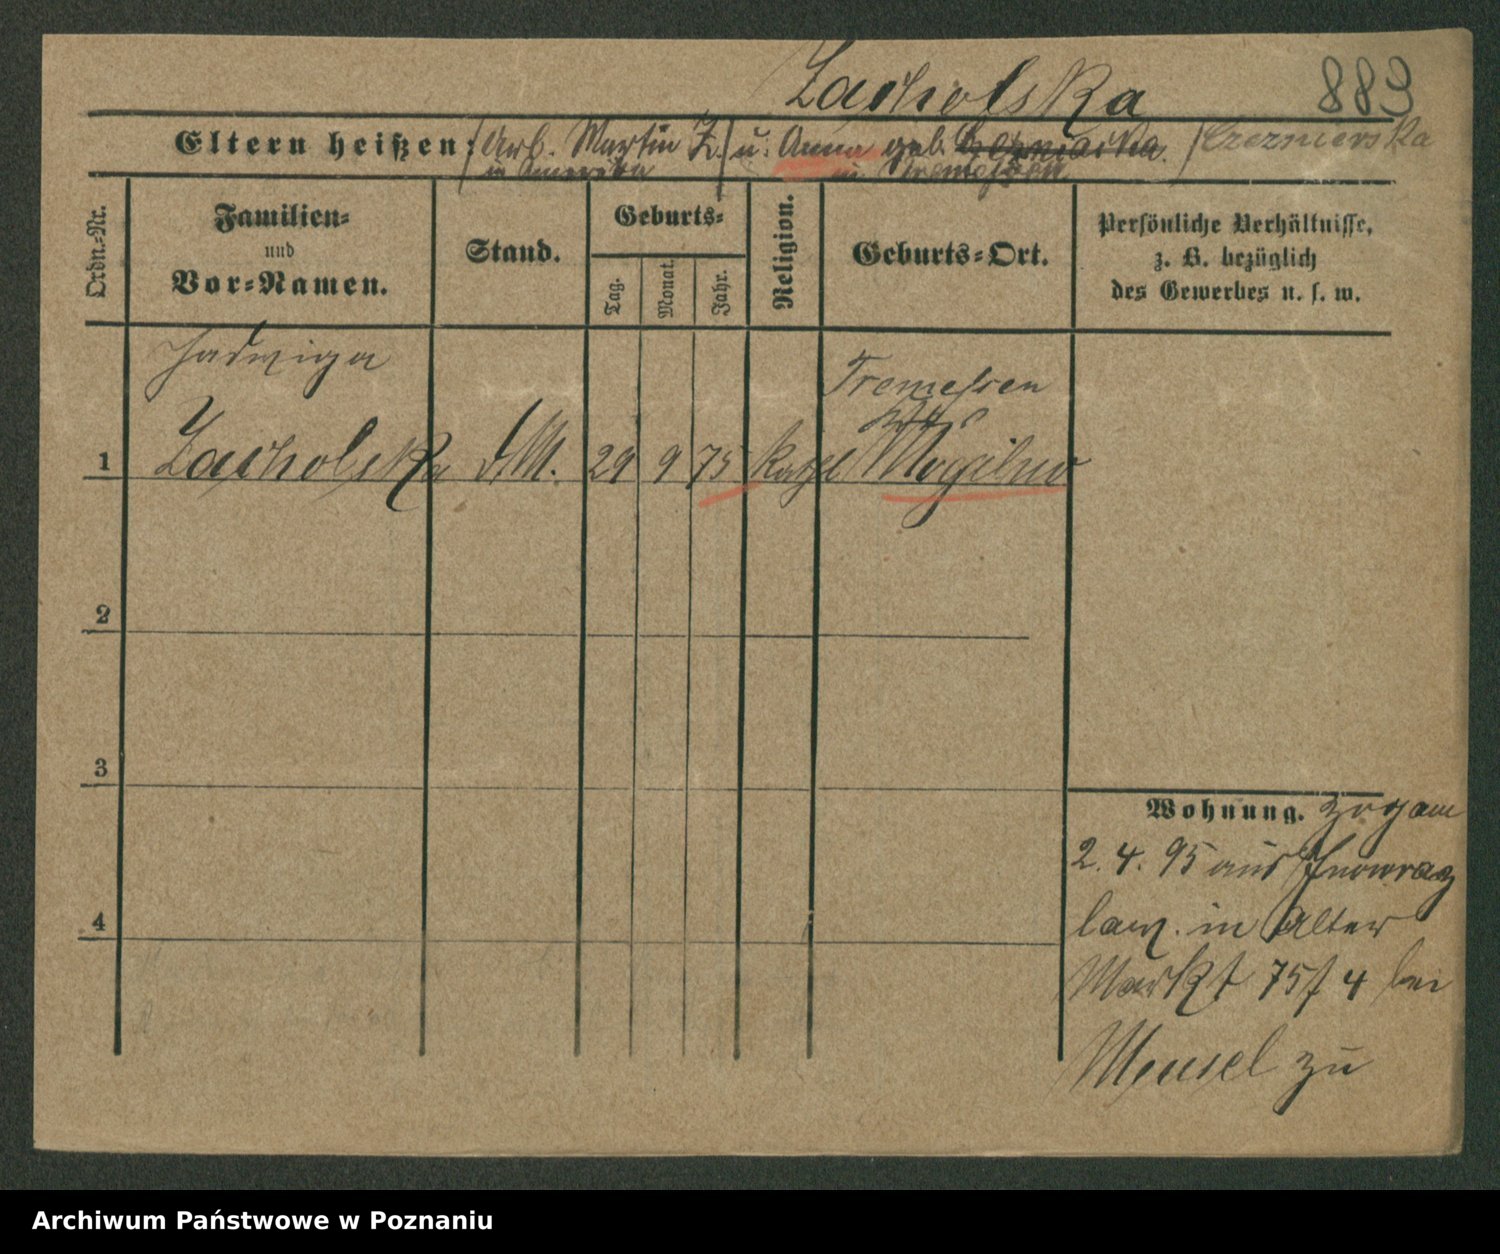 Zacholska 883
Eltern heißen: Arb. Martin Z. u. Anna geb. Czerniewska
in Amerika in Tremessen
Ordn.-Nr.
Familien-
und
Vor-Namen.
Stand.
Geburts-
Tag.
Monat.
Jahr.
Religion.
Geburts-Ort.
Persönliche Verhältnisse,
z. B. bezüglich
des Gewerbes u. s. w.
Jadwiga
Tremessen
1 Zacholska d. M. 29 9 75 kath Mogilno
2
3
4
Wohnung. zog am
2. 4. 95 aus Inowraz
law. in Alter
Markt 75 / 4 bei
Mensel zu
Archiwum Państwowe w Poznaniu